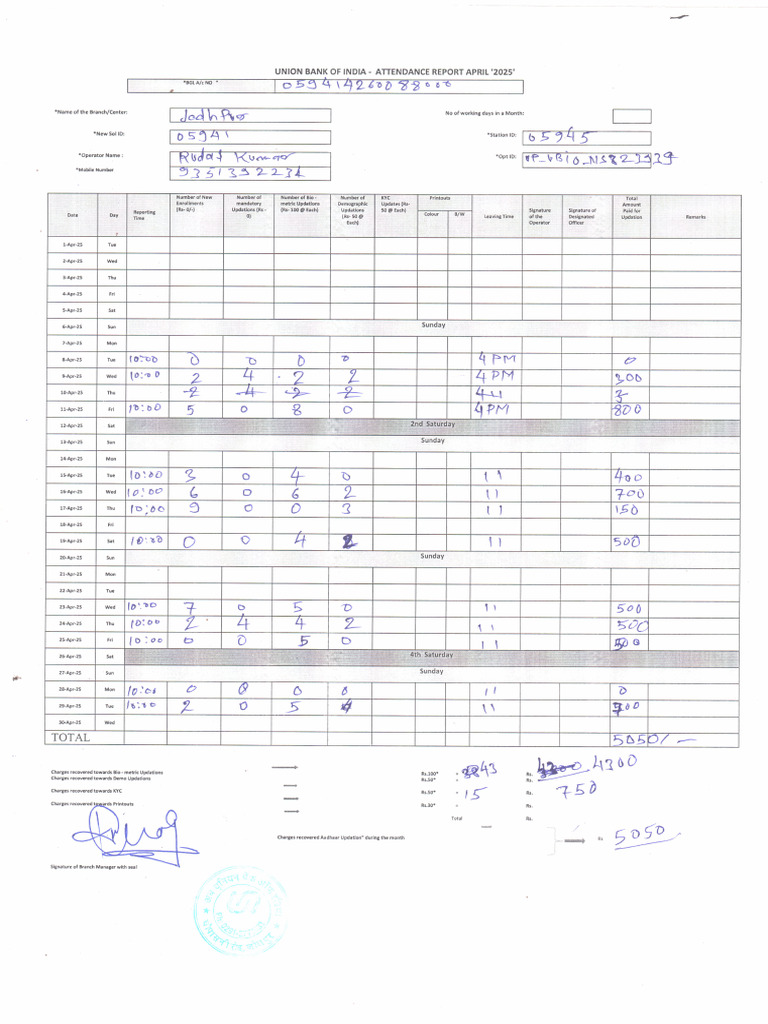 UNION BANK OF INDIA - ATTENDANCE REPORT APRIL '2025'
*BGL A/c NO * 059414260088000
*Name of the Branch/Center: Jodhpur No of working days in a Month:
*New Sol ID: 05941 *Station ID: 05945
*Operator Name : Kumar *Opt ID:
*Mobile Number 9351392234
Date Day Reporting Time Number of New Enrollments (Rs- 0/-) Number of mandatory Updations (Rs - 0) Number of Bio - metric Updations (Rs- 100 @ Each) Number of Demographic Updations (Rs- 50 @ Each) KYC Updates (Rs- 50 @ Each) Printouts Colour B/W Leaving Time Signature of the Operator Signature of Designated Officer Total Amount Paid for Updation Remarks
1-Apr-25 Tue
2-Apr-25 Wed
3-Apr-25 Thu
4-Apr-25 Fri
5-Apr-25 Sat
6-Apr-25 Sun Sunday
7-Apr-25 Mon
8-Apr-25 Tue 10:00 0 0 0 0 4 PM 0
9-Apr-25 Wed 10:00 2 4 2 2 4 PM 300
10-Apr-25 Thu 2 4 2 2
11-Apr-25 Fri 10:00 5 0 8 0 4PM 800
12-Apr-25 Sat 2nd Saturday
13-Apr-25 Sun Sunday
14-Apr-25 Mon
15-Apr-25 Tue 10:00 3 0 4 0 11 400
16-Apr-25 Wed 10:00 6 0 6 2 11 700
17-Apr-25 Thu 10:00 9 0 0 3 11 150
18-Apr-25 Fri
19-Apr-25 Sat 10:00 0 0 4 2 11 500
20-Apr-25 Sun Sunday
21-Apr-25 Mon
22-Apr-25 Tue
23-Apr-25 Wed 10:00 7 0 5 0 11 500
24-Apr-25 Thu 10:00 2 4 4 2 11 500
25-Apr-25 Fri 10:00 0 0 5 0 11 500
26-Apr-25 Sat 4th Saturday
27-Apr-25 Sun Sunday
28-Apr-25 Mon 10:00 0 0 0 0 11 0
29-Apr-25 Tue 10:00 2 0 5 4 11 700
30-Apr-25 Wed
TOTAL 5050/-
Charges recovered towards Bio - metric Updations Rs.100* = 43 Rs. 4300
Charges recovered towards Demo Updations Rs.50* = Rs.
Charges recovered towards KYC Rs.50* = 15 Rs. 750
Charges recovered towards Printouts Rs.30* = Rs.
Total Rs.
Charges recovered Aadhaar Updation" during the month Rs 5050
Signature of Branch Manager with seal